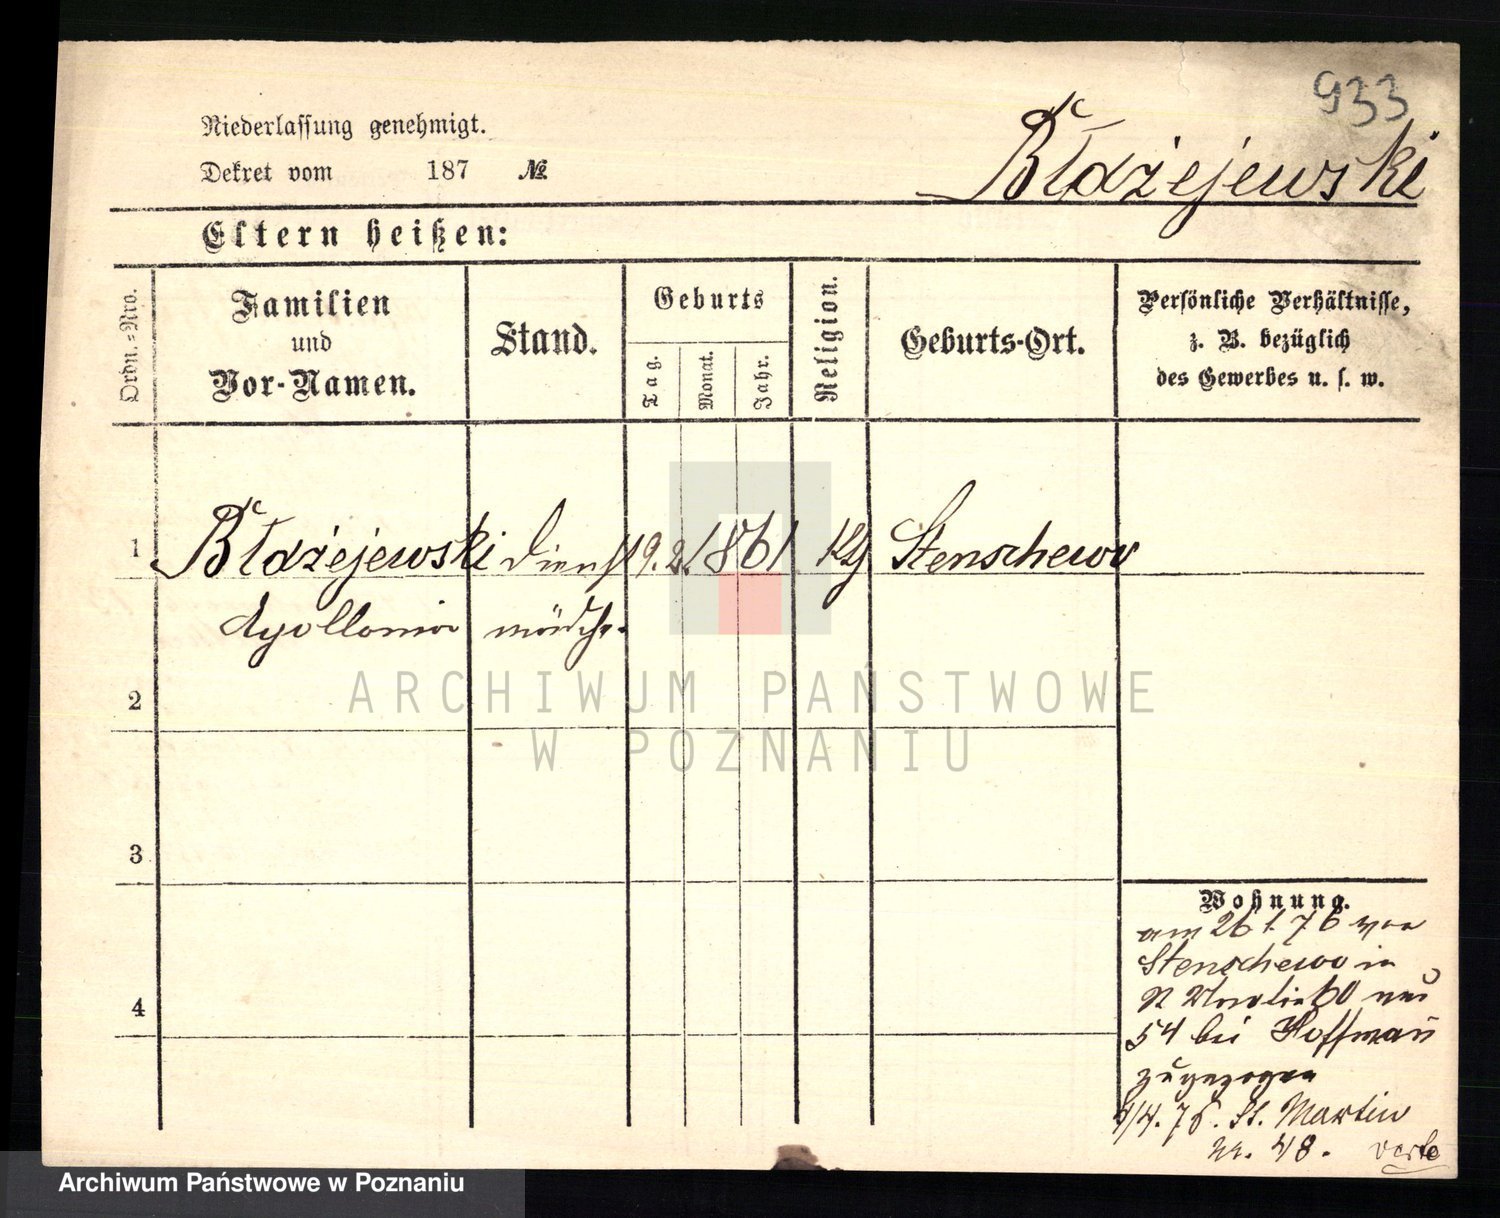 933
Niederlassung genehmigt.
Dekret vom 187 №
Błażejewski
Eltern heißen:
Ordn.-Nro.
Familien
und
Vor-Namen.
Stand.
Geburts
Tag.
Monat.
Jahr.
Religion.
Geburts-Ort.
Persönliche Verhältnisse,
z. B. bezüglich
des Gewerbes u. s. w.
1 Błażejewski Dienst 19. 2. 1861 Kth Stenschewo
Apollonia mädch.
2
3
4
Wohnung.
am 26 1 76 von
Stenschewo in
54 bei Hoffmann
zugezogen
4/4. 76. St. Martin
Nr. 48. verte
ARCHIWUM PAŃSTWOWE
W POZNANIU
Archiwum Państwowe w Poznaniu